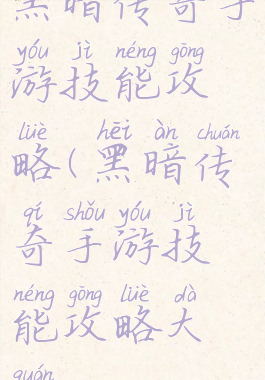 黑暗传奇手
yóu jì néng gōng
游技能攻
lüè hēi àn chuán
略(黑暗传
qí shǒu yóu jì
奇手游技
néng gōng lüè dà
能攻略大
quán